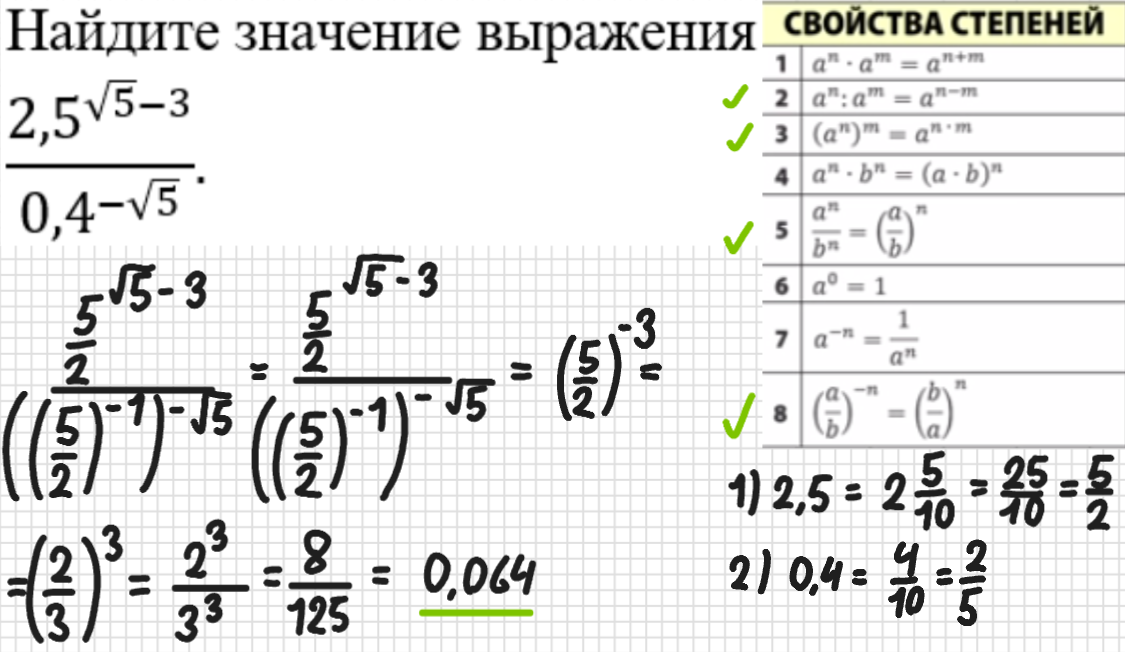 Найдите значение выражения
2,5^(√5−3)
/
0,4^(−√5) .
СВОЙСТВА СТЕПЕНЕЙ
1 aⁿ · aᵐ = aⁿ⁺ᵐ
2 aⁿ : aᵐ = aⁿ⁻ᵐ
3 (aⁿ)ᵐ = aⁿ ˙ ᵐ
4 aⁿ · bⁿ = (a · b)ⁿ
5 aⁿ/bⁿ = (a/b)ⁿ
6 a⁰ = 1
7 a⁻ⁿ = 1/aⁿ
8 (a/b)⁻ⁿ = (b/a)ⁿ
5/2^(√5-3) / ((5/2)^-1)^-√5 = 5/2^(√5-3) / ((5/2)^-1)^-√5 = (5/2)^-3 =
=(2/3)³ = 2³/3³ = 8/125 = 0,064
1) 2,5 = 2 5/10 = 25/10 = 5/2
2) 0,4 = 4/10 = 2/5